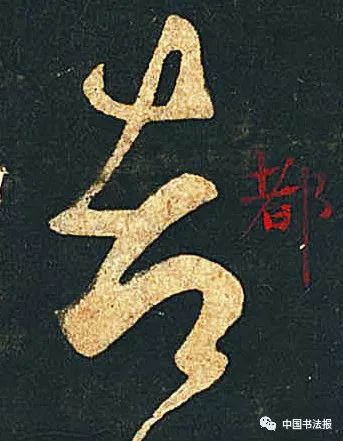 都
都
中国书法报